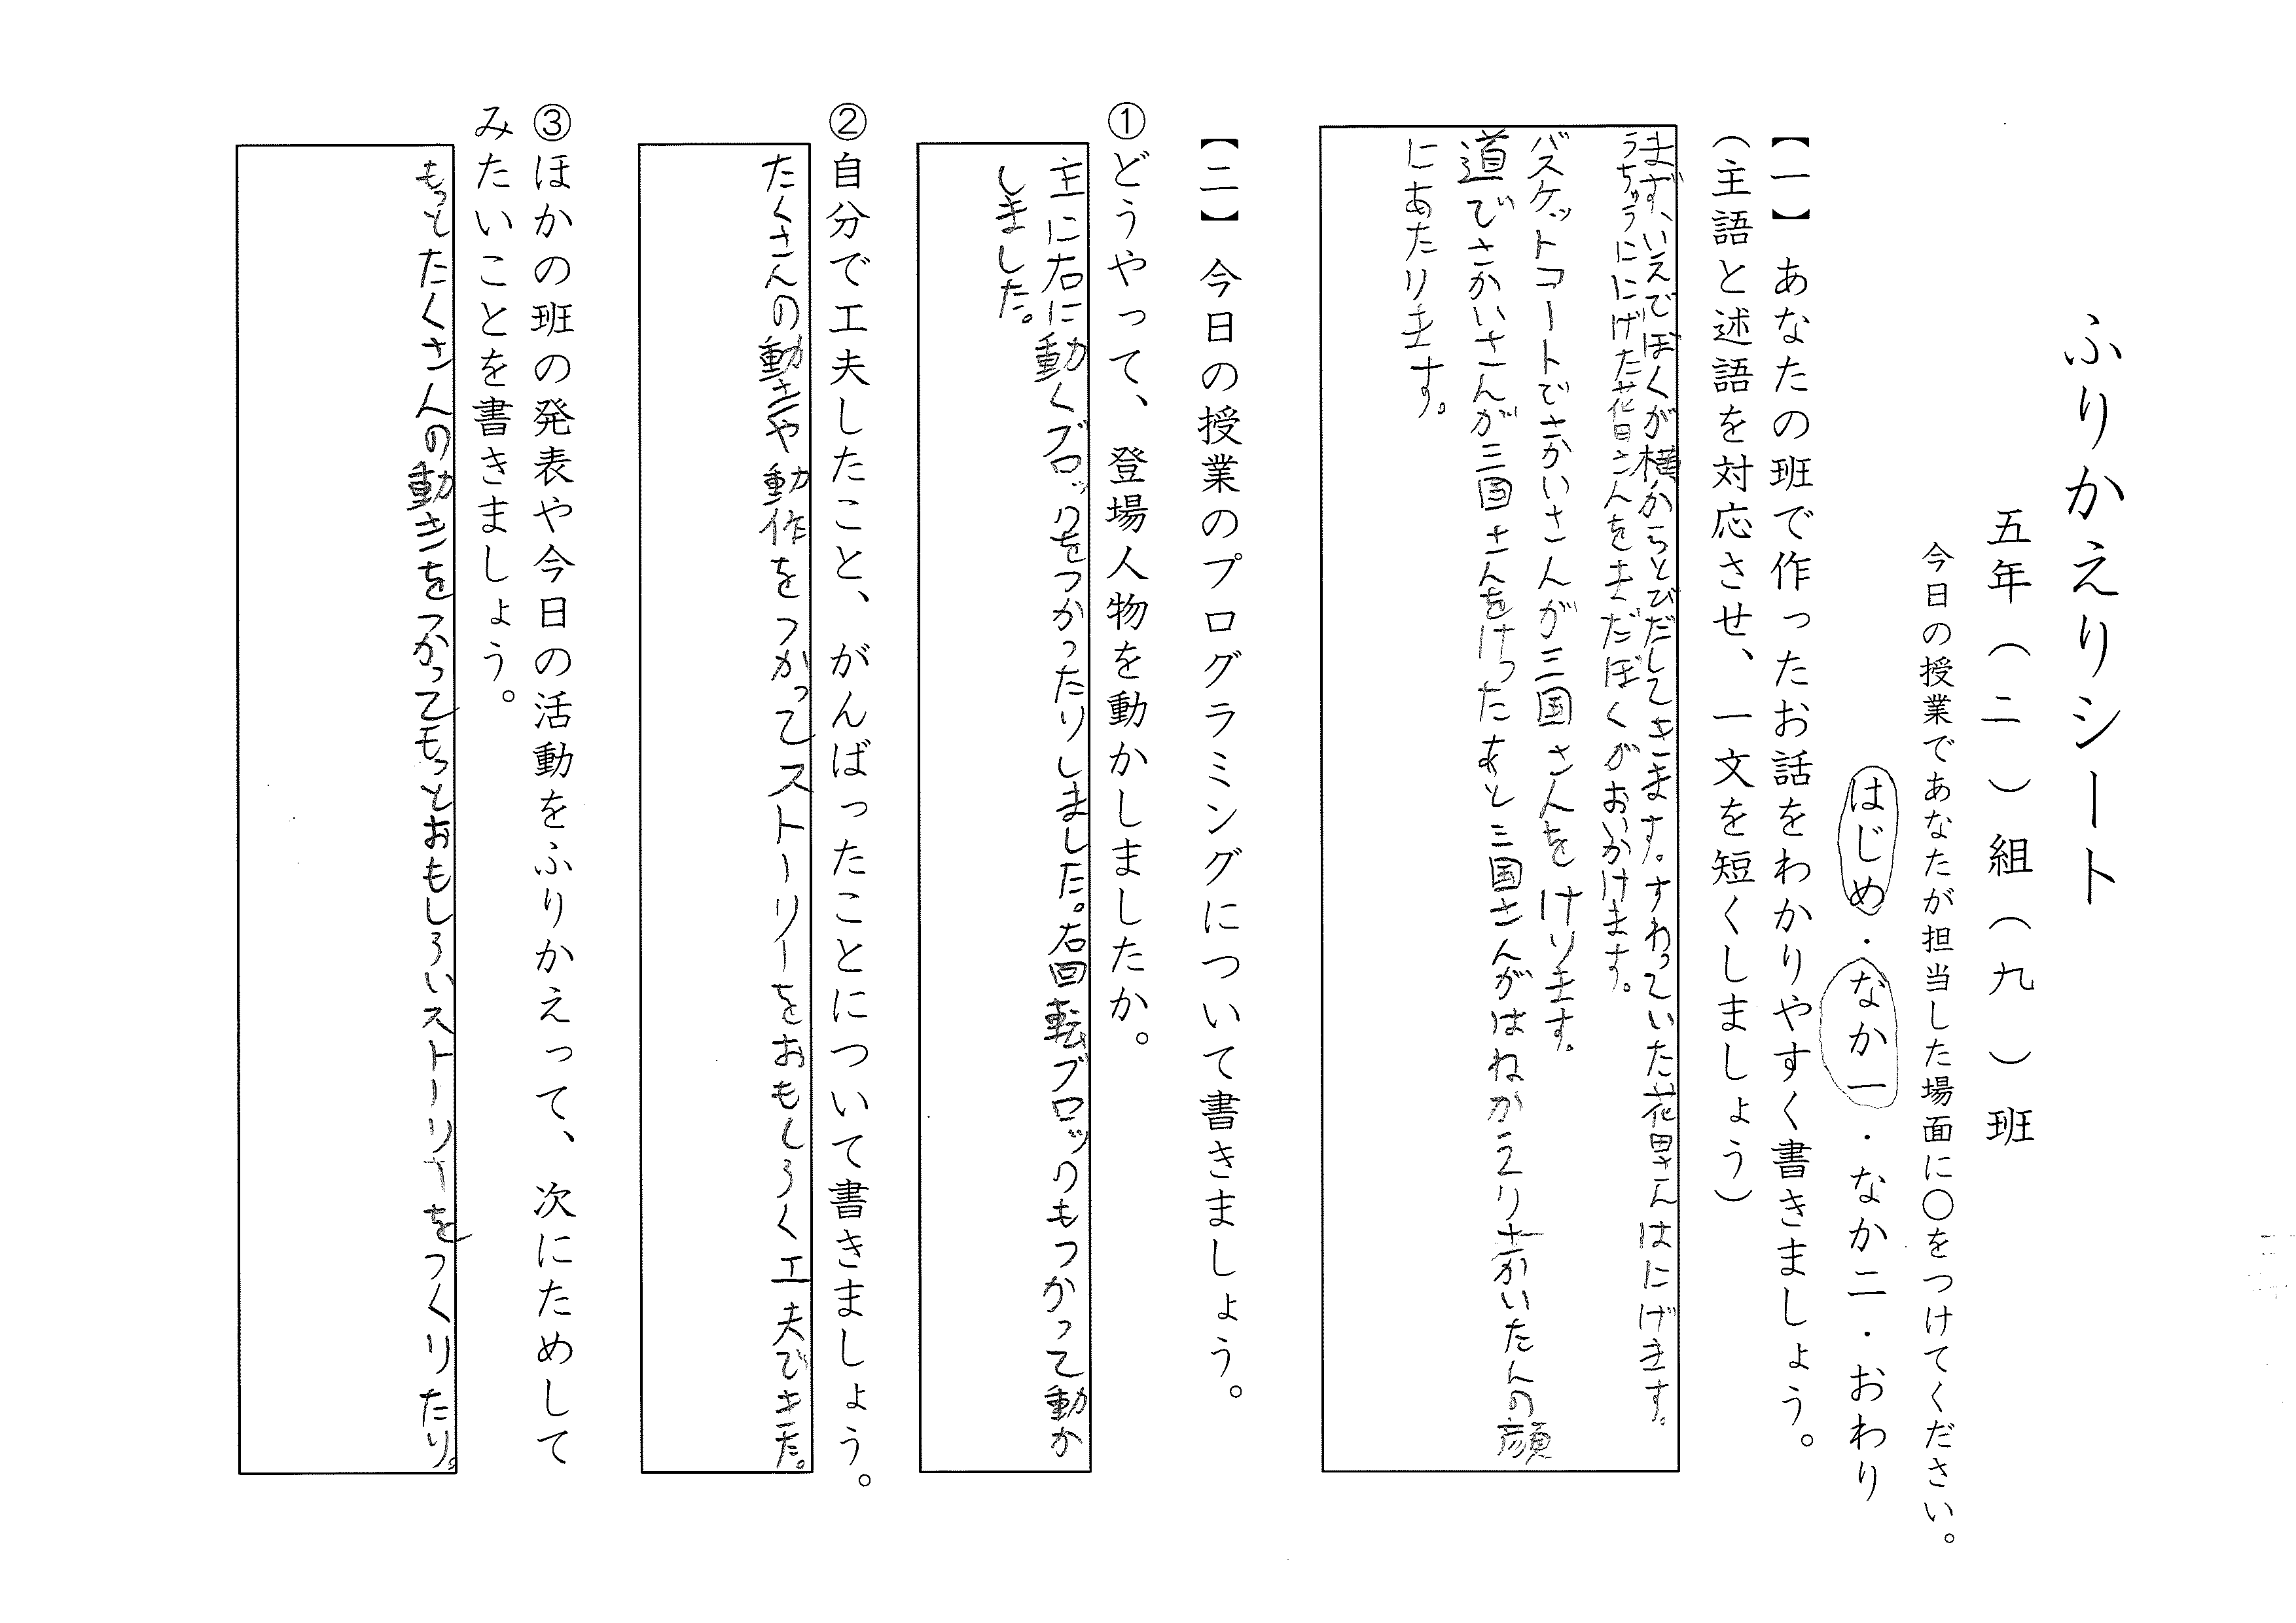 ふりかえりシート
五年（二）組（九）班
今日の授業であなたが担当した場面に○をつけてください。
はじめ・なか一・なか二・おわり
【一】あなたの班で作ったお話をわかりやすく書きましょう。
（主語と述語を対応させ、一文を短くしましょう）
まず、いえでぼくが横からとびだしてきます。すわっていた花里さんはにげます。
うちゅうににげた花里さんをまだぼくがおいかけます。
バスケットコートでさかいさんが三国さんをけります。
道でさかいさんが三国さんをけったあと三国さんがはねかえりさかいたんの顔
にあたります。
【二】今日の授業のプログラミングについて書きましょう。
①どうやって、登場人物を動かしましたか。
主に右に動くブロックをつかったりしました。右回転ブロックもつかって動か
しました。
②自分で工夫したこと、がんばったことについて書きましょう。
たくさんの動きや動作をつかってストーリーをおもしろく工夫できた。
③ほかの班の発表や今日の活動をふりかえって、次にためして
みたいことを書きましょう。
もっとたくさんの動きをつかってもっとおもしろいストーリーをつくりたり。